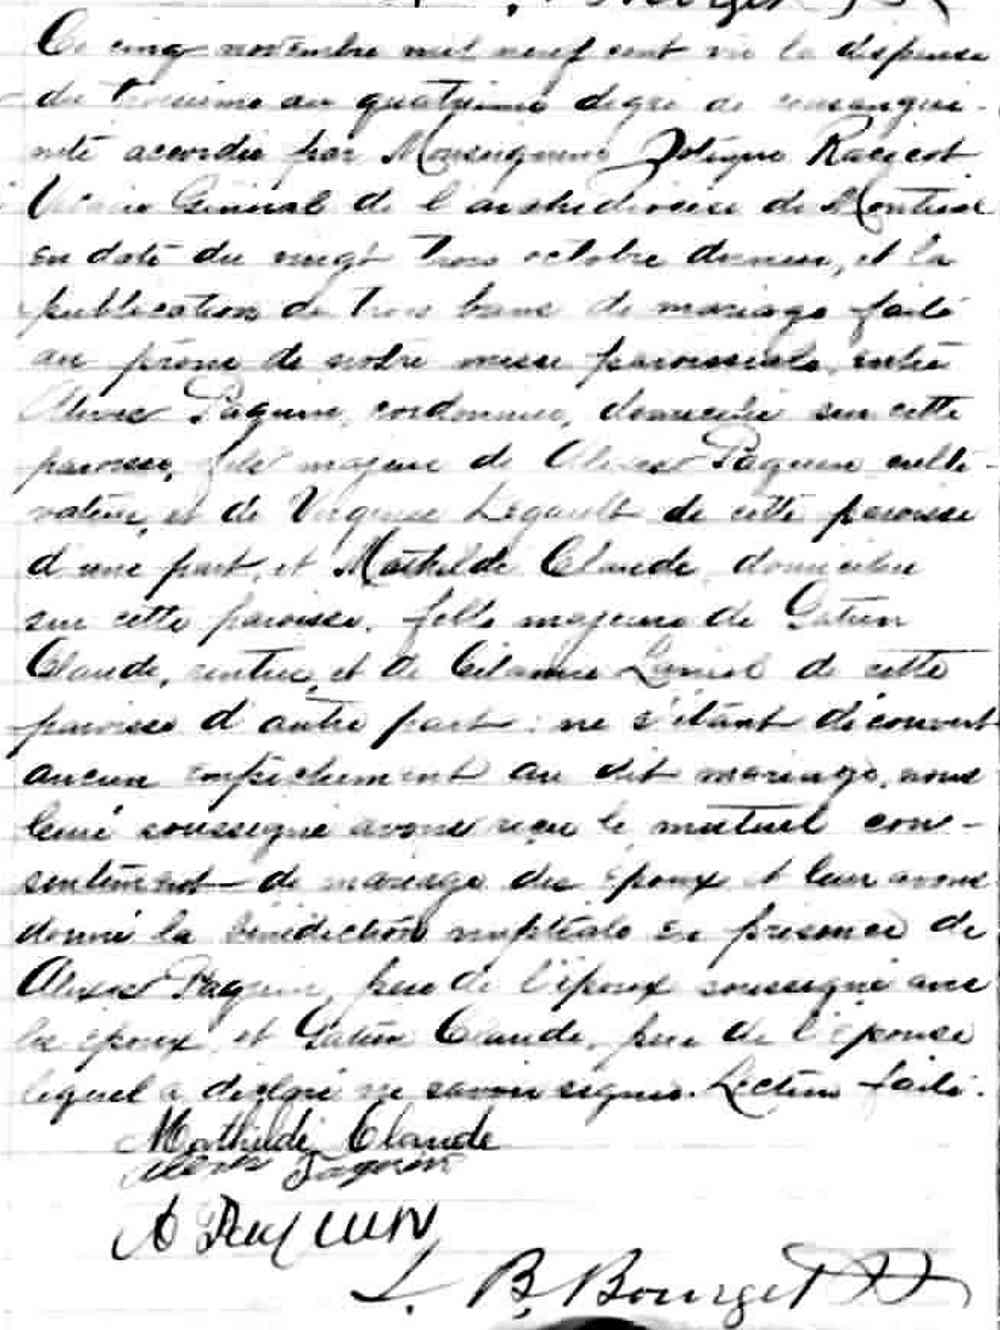 Ce cinq novembre mil neuf cent vu la dispense
du troisième au quatrième degré de consangui-
nité accordée par Monseigneur Zotique Racicot
Vicaire Général de l'archidiocèse de Montréal
en date du vingt trois octobre dernier, et la
publication de trois bans de mariage faite
au prône de notre messe paroissiale, entre
Alexis Paquin, cordonnier, domicilié sur cette
paroisse, fils majeur de Alexis Paquin culti-
vateur, et de Virginie Legault de cette paroisse
d'une part, et Mathilde Claude, domiciliée
sur cette paroisse, fille majeure de Gatien
Claude, rentier, et de Laniel de cette
paroisse d'autre part; ne s'étant découvert
aucun empêchement au dit mariage, nous
curé soussigné avons reçu le mutuel con-
sentement de mariage des époux et leur avons
donné la bénédiction nuptiale en présence de
Alexis Paquin, père de l'époux soussigné avec
les époux, et Gatien Claude, père de l'épouse
lequel a déclaré ne savoir signer. Lecture faite.
Mathilde Claude
Alexis Paquin
A Paquin
L. B. Bourget